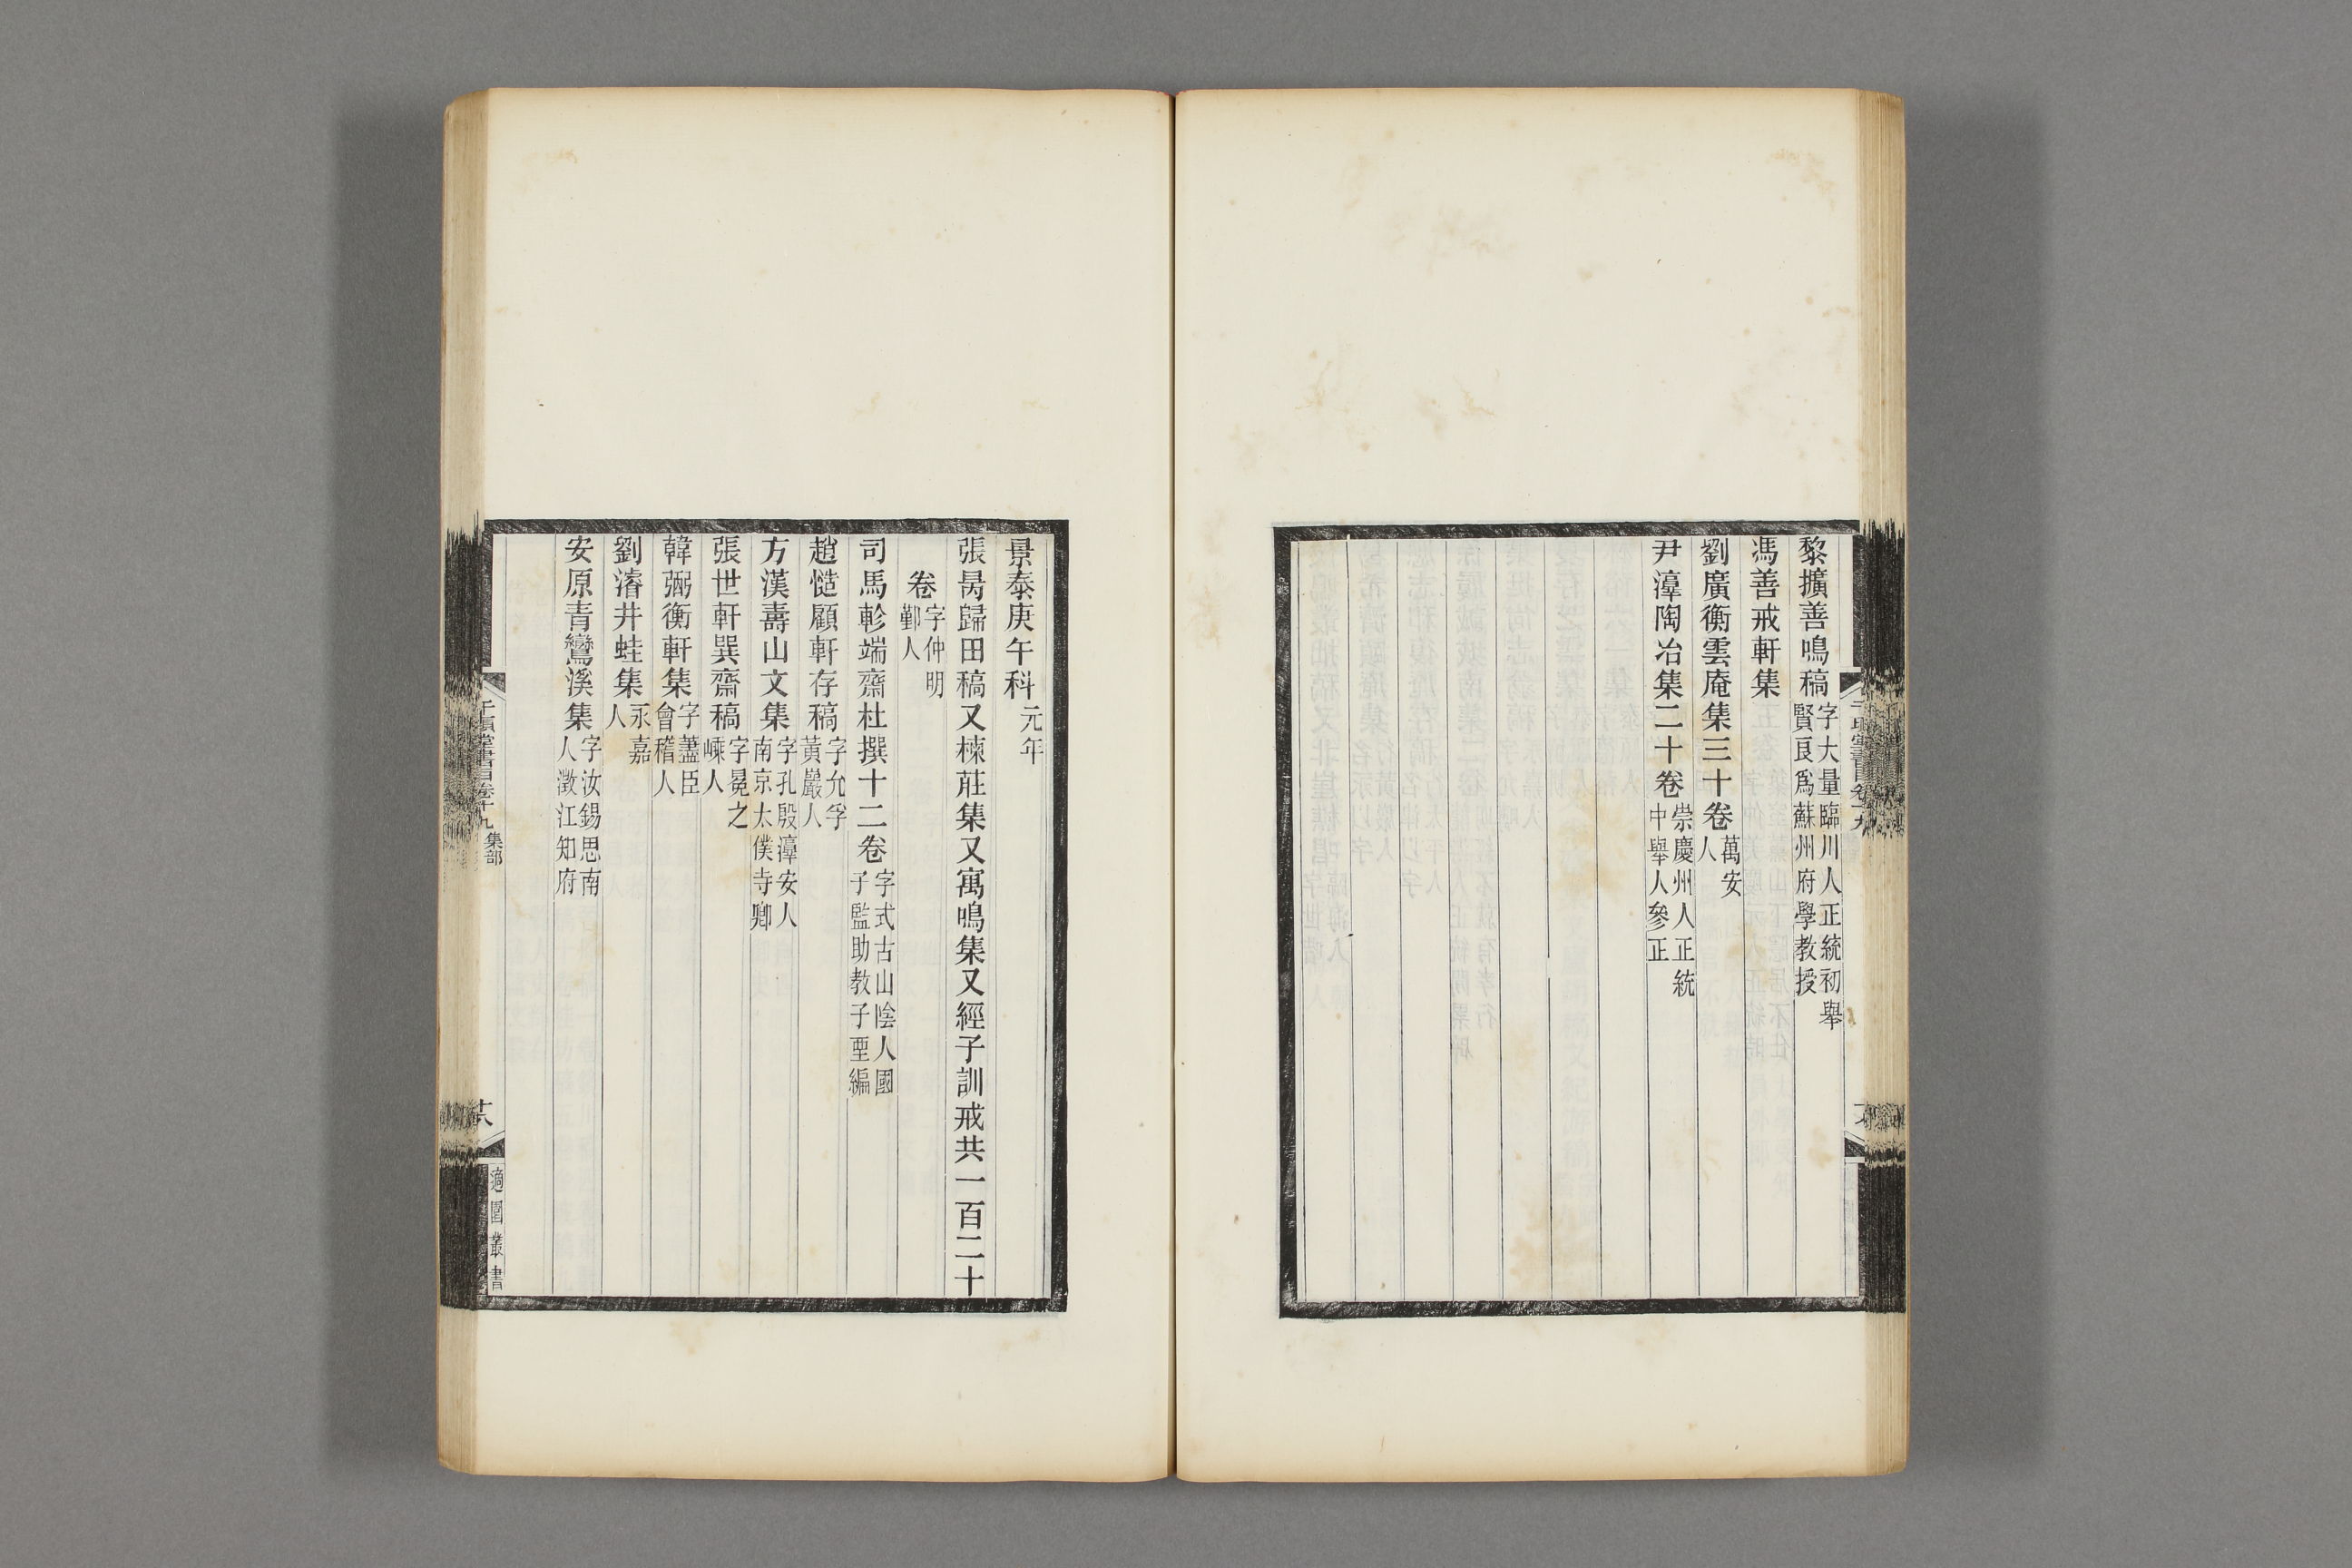 黎擴善鳴稿字大量臨川人正統初舉賢良爲蘇州府學教授
馮善戒軒集
劉廣衡雲庵集三十卷萬安人
尹澤陶冶集二十卷崇慶州人正統中舉人參正
景泰庚午科元年
張昺歸田稿又楝莊集又寓鳴集又經子訓戒共一百二十
卷字仲明鄞人
司馬軫端齋杜撰十二卷字式古山陰人國子監助教子垔編
趙愷顧軒存稿字允孚黃巖人
方漢壽山文集字孔殷淳安人南京太僕寺卿
張世軒巽齋稿字冕之嵊人
韓弼衡軒集字藎臣會稽人
劉濬井蛙集永嘉人
安原青鸞溪集字汝錫思南人澂江知府
千頃堂書目卷十九 集部
十八
適園叢書